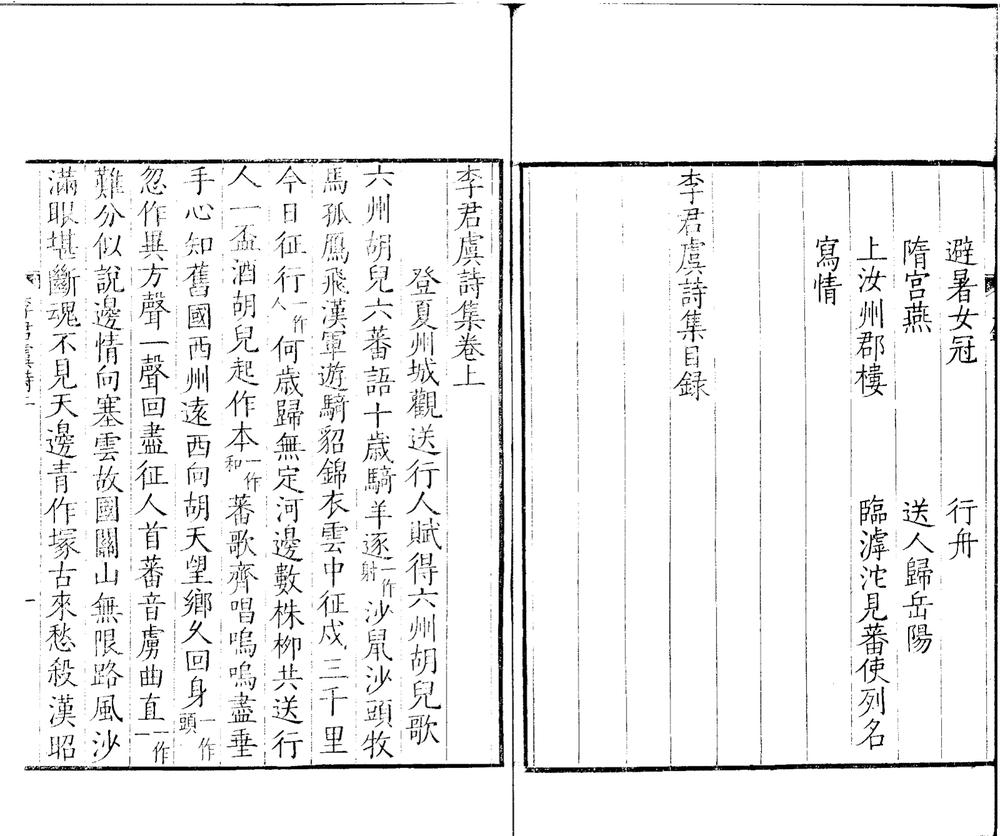 避暑女冠　行舟
隋宫燕　送人歸岳陽
上汝州郡樓　臨滹沱見蕃使列名
寫情
李君虞詩集目録
李君虞詩集卷上
登夏州城觀送行人賦得六州胡兒歌
六州胡兒六蕃語十歳騎羊逐一作射沙鼠沙頭牧
馬孤鴈飛漢軍遊騎貂錦衣雲中征戍三千里
今日征行一作人何歳歸無定河邊數株栁共送行
人一盃酒胡兒起作本一作和蕃歌齊唱嗚嗚盡垂
手心知舊國西州逺西向胡天望鄉久回身一作頭
忽作異方聲一聲回盡征人首蕃音虜曲直一作一
難分似說邊情向塞雲故國關山無限路風沙
滿眼堪斷魂不見天邊青作塚古來愁殺漢昭